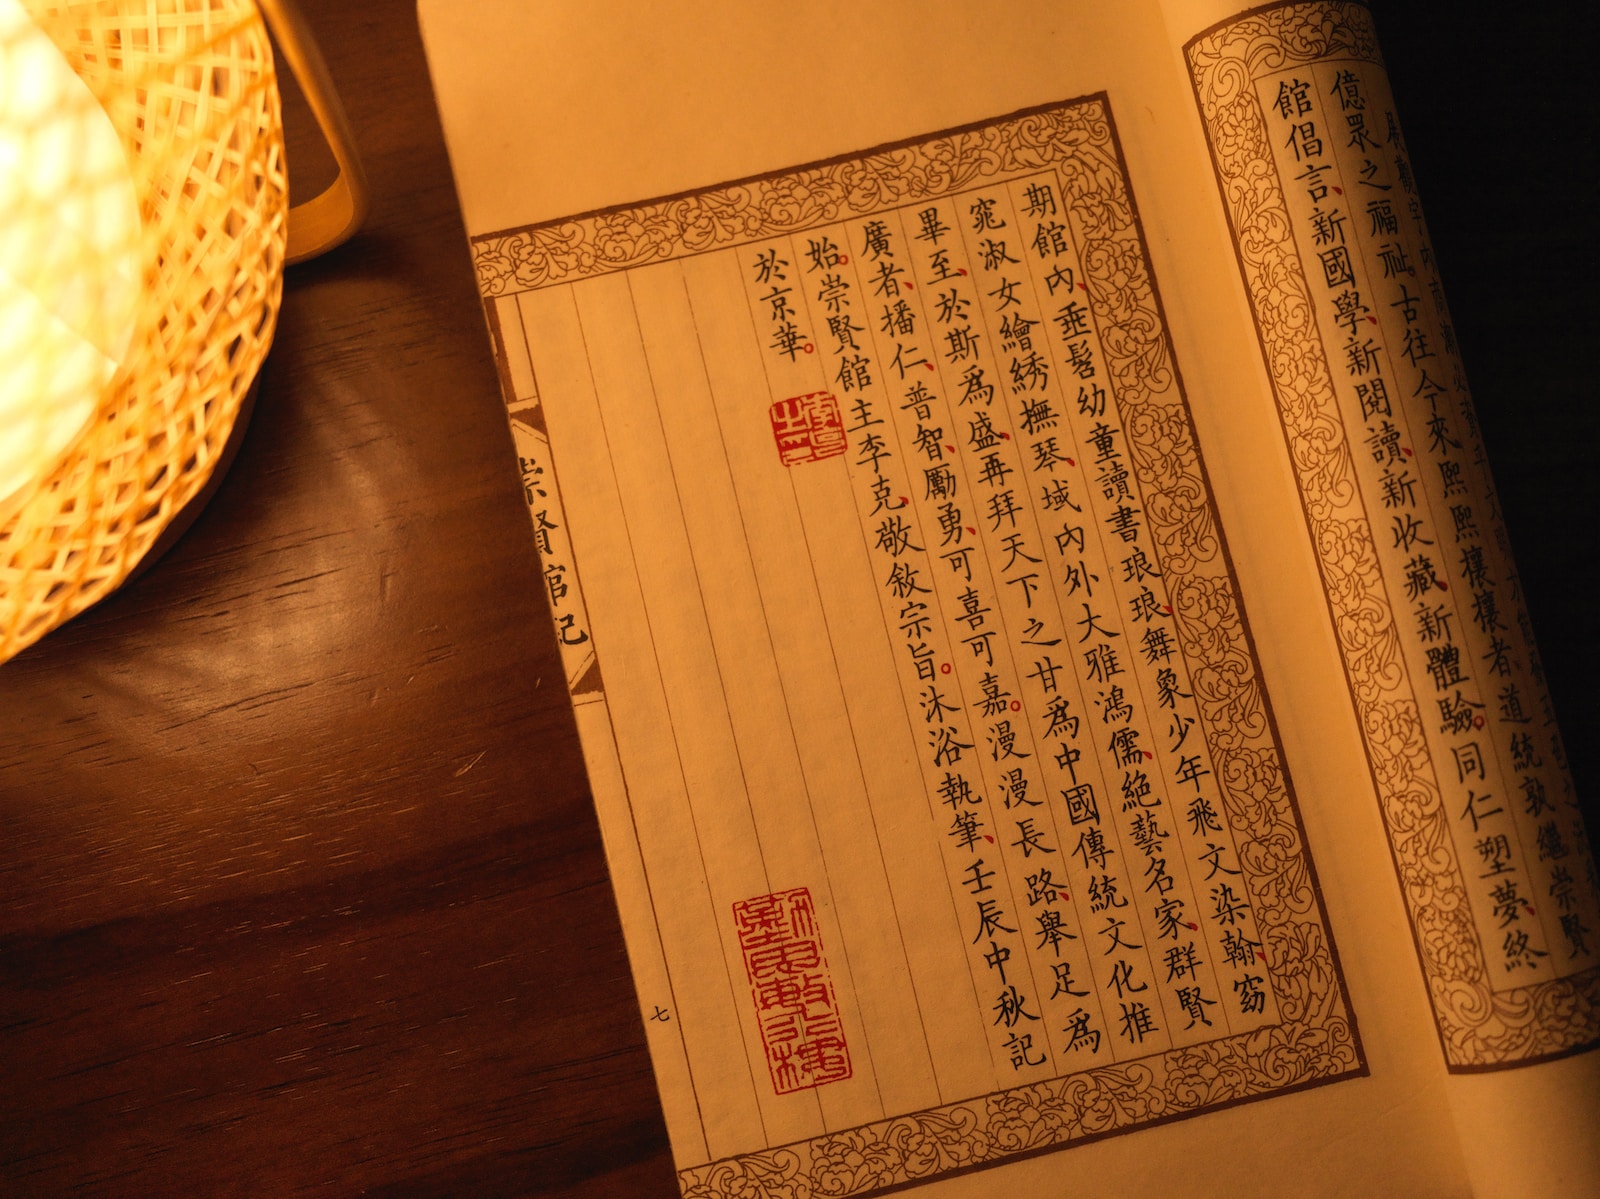 億眾之福祉。古往今來熙熙攘攘者、道統孰繼崇賢
館倡言、新國學、新閱讀、新收藏、新體驗。同仁塑夢、終
期館內、垂髫幼童讀書琅琅、舞象少年飛文染翰、窈
窕淑女繪綉撫琴、域內外大雅鴻儒、絕藝名家、群賢
畢至、於斯為盛、再拜天下之甘為中國傳統文化推
廣者、播仁、普智、勵勇、可喜可嘉。漫漫長路、舉足為
始。崇賢館主李克、敬敘宗旨。沐浴執筆、壬辰中秋記
於京華。
崇賢館記
七